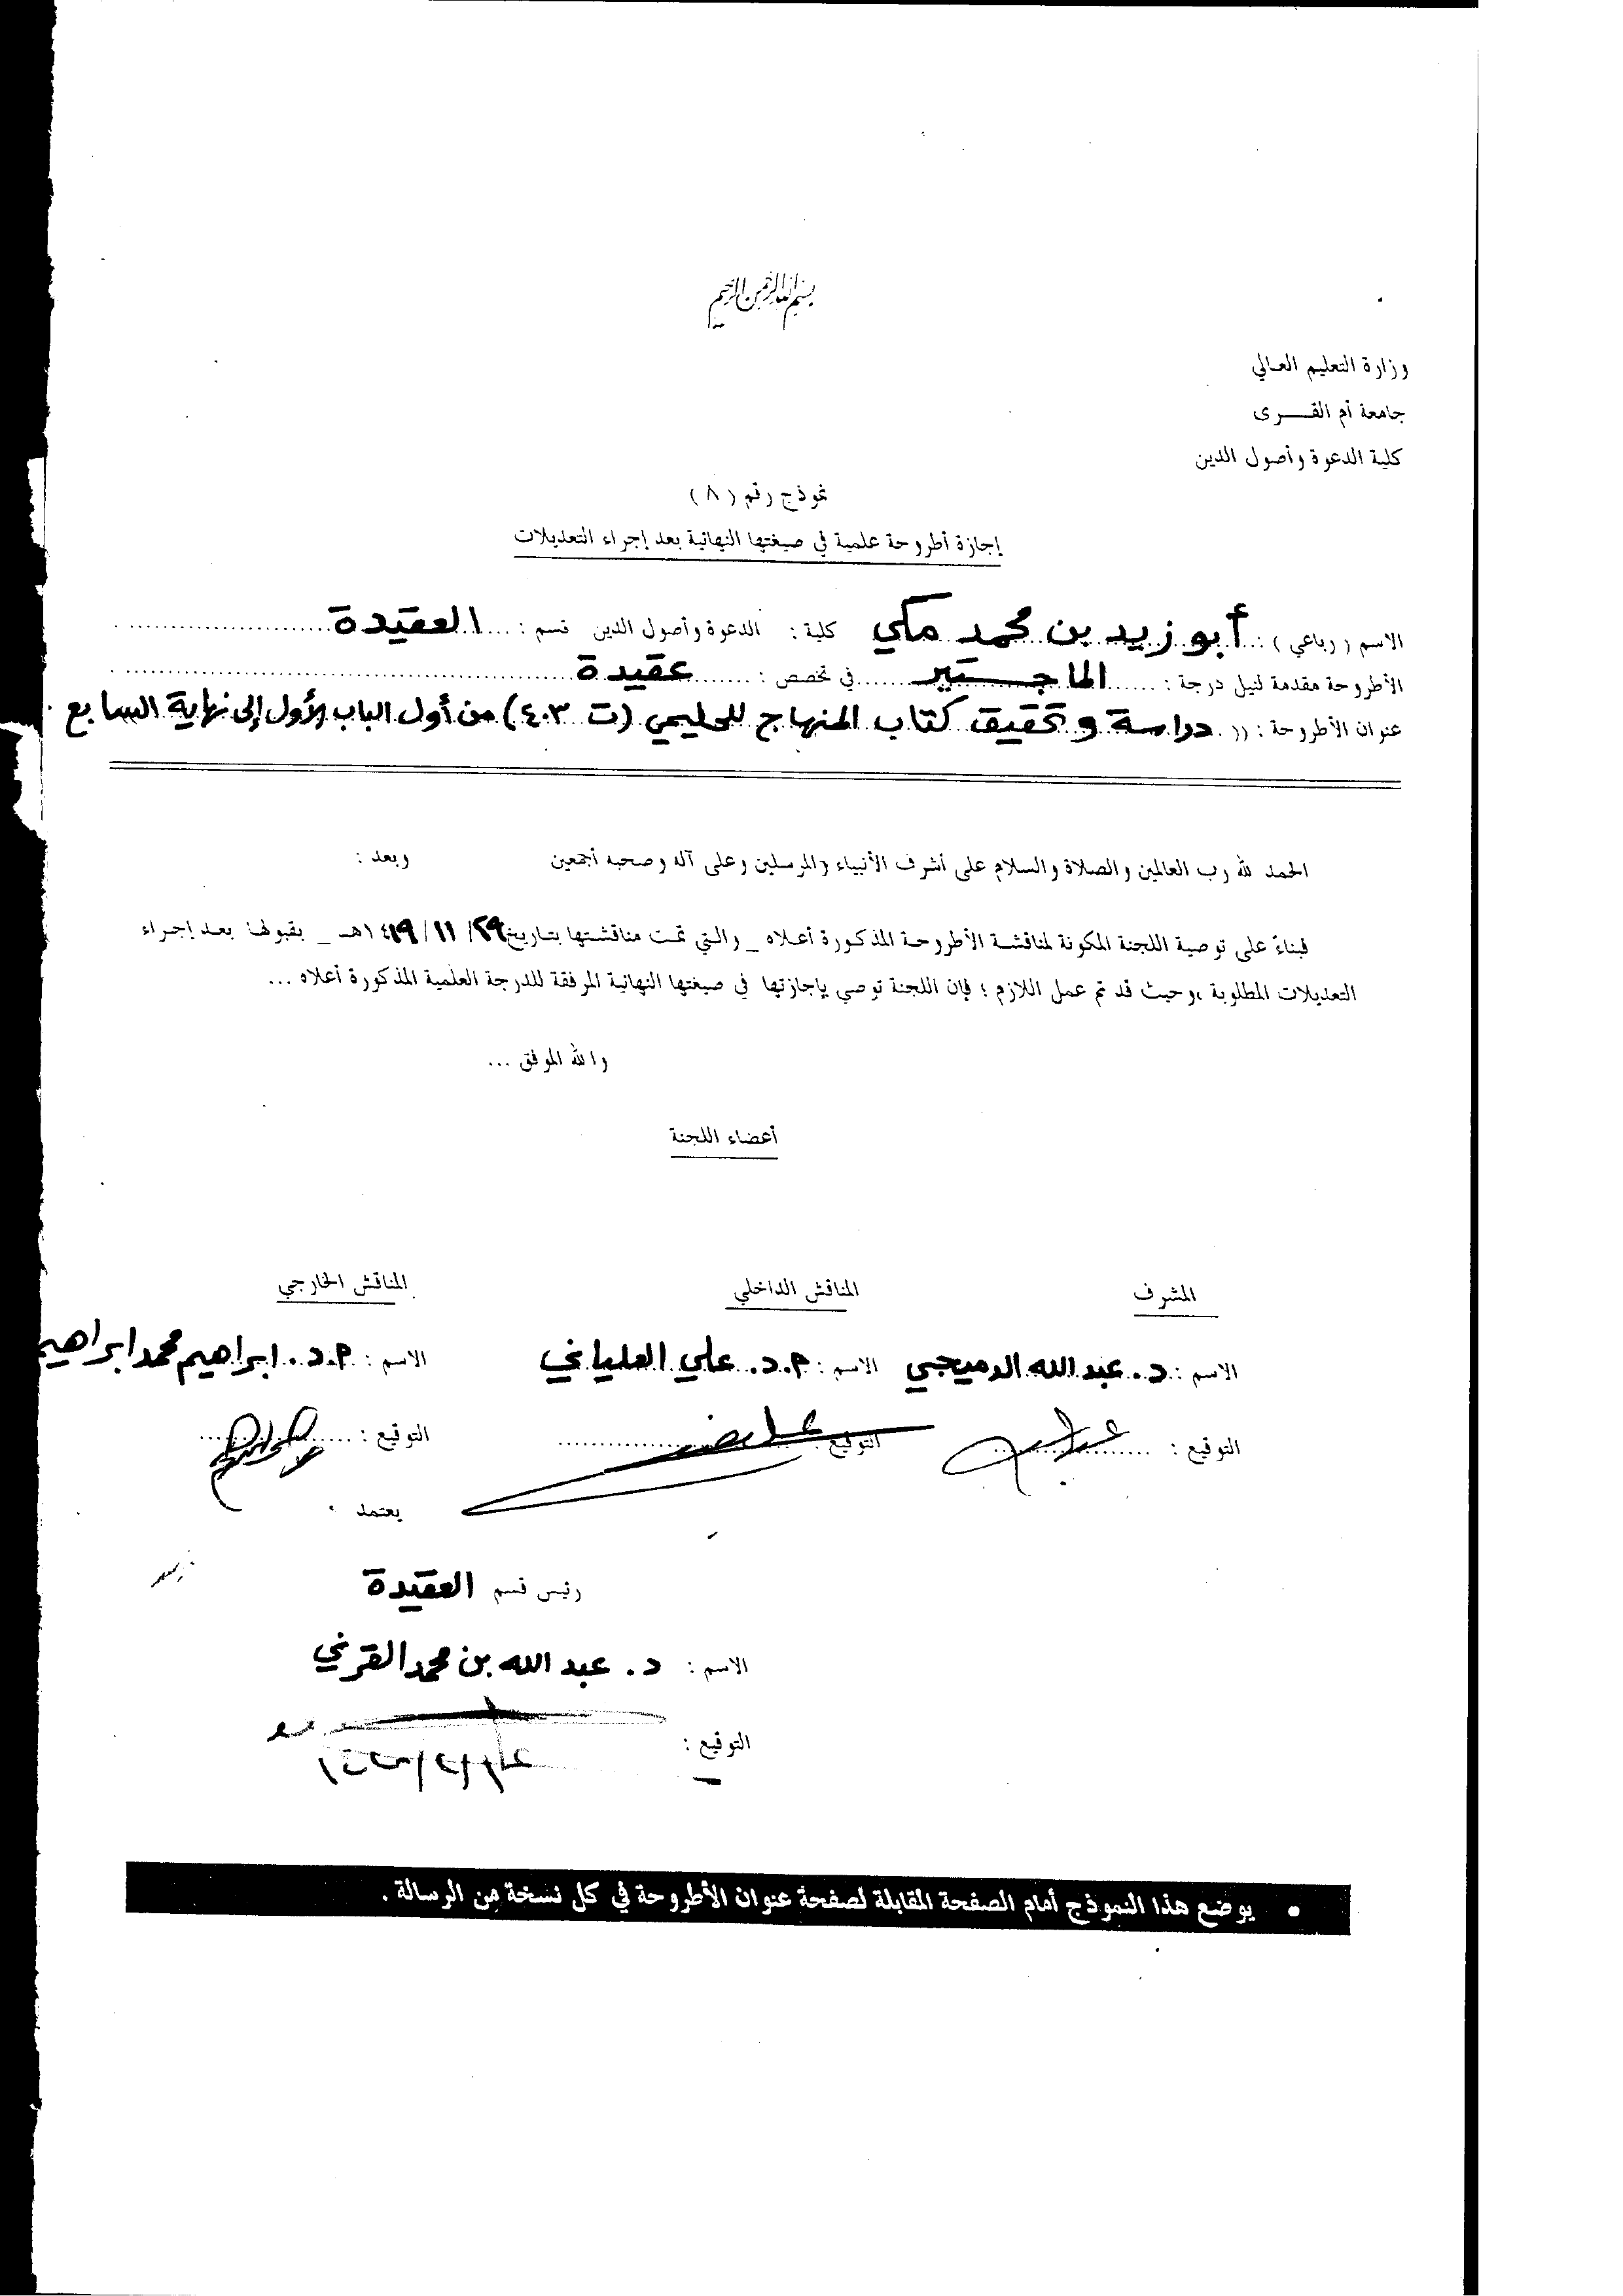 بسم الله الرحمن الرحيم
وزارة التعليم العالي
جامعة أم القــرى
كلية الدعوة وأصول الدين
نموذج رقم ( ٨ )
إجازة أطروحة علمية في صيغتها النهائية بعد إجراء التعديلات
الاسم ( رباعي ) : أبو زيد بن محمد مكي كلية : الدعوة وأصول الدين قسم : العقيدة
الأطروحة مقدمة لنيل درجة : الماجستير في تخصص : عقيدة
عنوان الأطروحة : (( دراسة وتحقيق كتاب المنهاج للحليمي (ت ٤٠٣) من أول الباب الأول إلى نهاية السابع
الحمد لله رب العالمين والصلاة والسلام على أشرف الأنبياء والمرسلين وعلى آله وصحبه أجمعين وبعد :
فبناءً على توصية اللجنة المكونة لمناقشة الأطروحة المذكورة أعلاه _ والتي تمت مناقشتها بتاريخ ٢٩/ ١١ / ١٤١٩هـ _ بقبولها بعد إجراء
التعديلات المطلوبة ، وحيث قد تم عمل اللازم ؛ فإن اللجنة توصي بإجازتها في صيغتها النهائية المرفقة للدرجة العلمية المذكورة أعلاه ...
والله الموفق ...
أعضاء اللجنة
المشرف المناقش الداخلي المناقش الخارجي
الاسم : د. عبد الله الدميجي الاسم : أ.د. علي العلياني الاسم : أ.د. ابراهيم محمد ابراهيم
التوقيع : التوقيع : التوقيع :
يعتمد
رئيس قسم العقيدة
الاسم : د. عبد الله بن محمد القرني
التوقيع :
• يوضع هذا النموذج أمام الصفحة المقابلة لصفحة عنوان الأطروحة في كل نسخة من الرسالة .